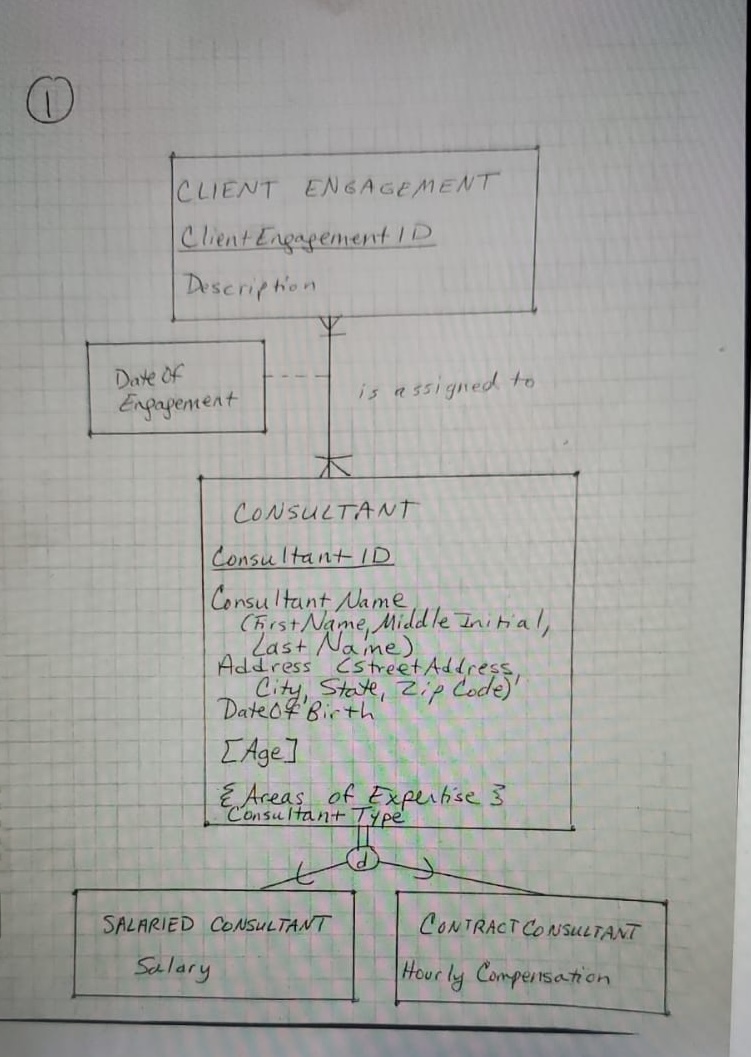 1
CLIENT ENGAGEMENT
Client Engagement ID
Description
Date Of
Engagement
is assigned to
CONSULTANT
Consultant ID
Consultant Name
(First Name, Middle Initial,
Last Name)
Address (Street Address,
City, State, Zip Code)
Date Of Birth
[Age]
{Areas of Expertise}
Consultant Type
d
SALARIED CONSULTANT
Salary
CONTRACT CONSULTANT
Hourly Compensation